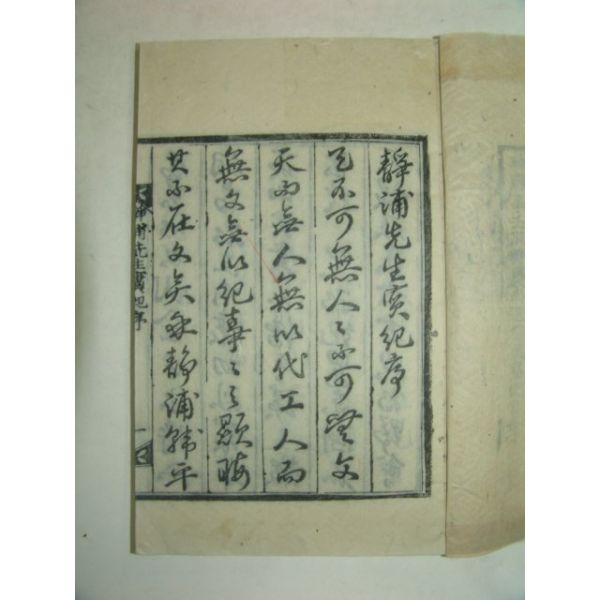 靜浦先生實紀序
天不可無人人不可無文
天而無人無以代工人而
無文無以紀事事之顯晦
其不在文矣乎靜浦韓平
靜浦先生實紀序 一